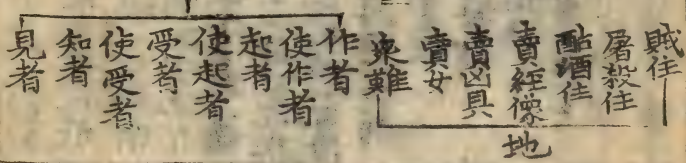 賊住
屠殺住
酤酒住
賣經像
賣凶具
賣女
難
地
作者
使作者
起者
使起者
受者
使受者
知者
見者